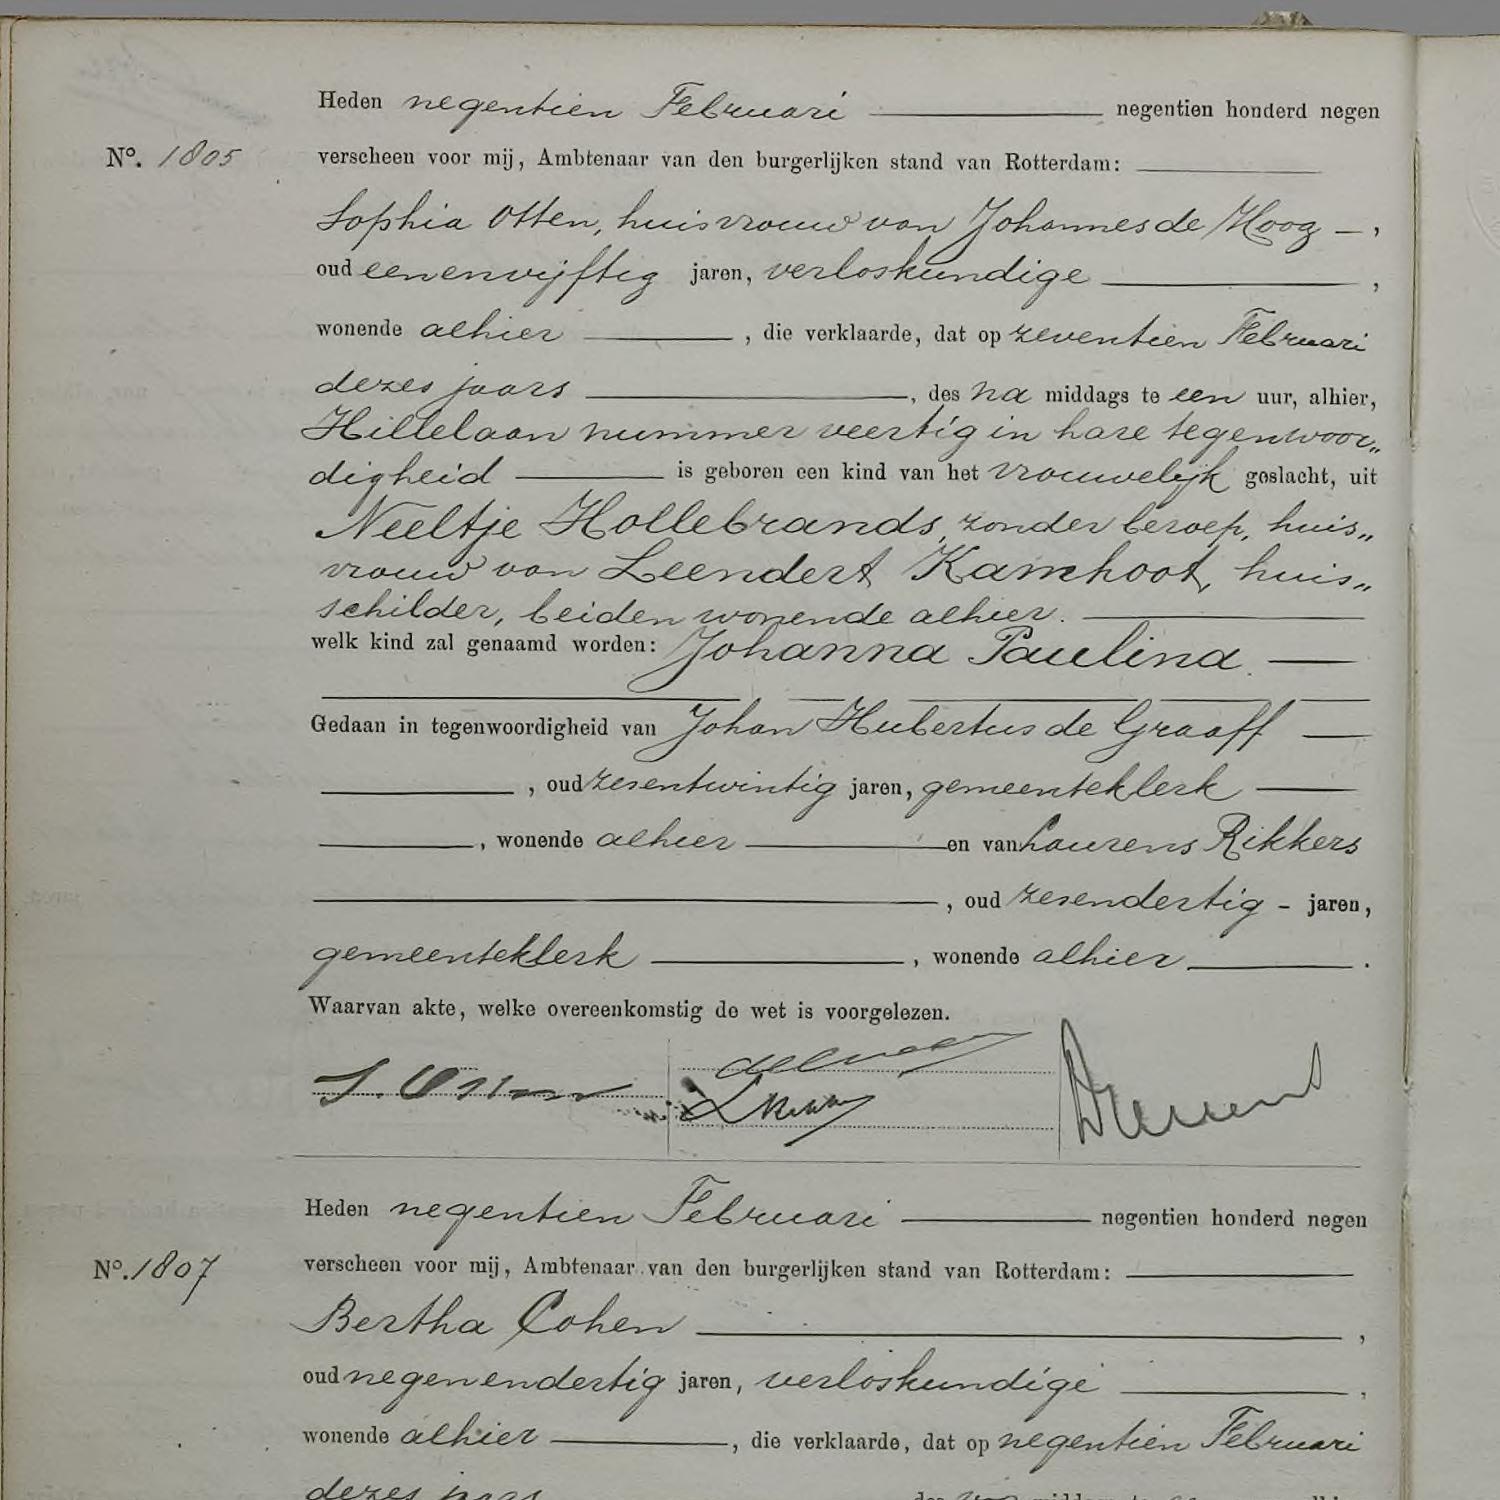 Heden negentien Februari negentien honderd negen
No. 1805 verscheen voor mij, Ambtenaar van den burgerlijken stand van Rotterdam:
Sophia Otten, huisvrouw van Johannes de Hoog,
oud eenenvijftig jaren, verloskundige,
wonende alhier, die verklaarde, dat op zeventien Februari
dezes jaars, des na middags te een uur, alhier,
Hillelaan nummer veertig in hare tegenwoor„
digheid is geboren een kind van het vrouwelijk geslacht, uit
Neeltje Hollebrands, zonder beroep, huis„
vrouw van Leendert Kamhoot, huis„
schilder, beiden wonende alhier.
welk kind zal genaamd worden: Johanna Paulina.
Gedaan in tegenwoordigheid van Johan Hubertus de Graaff
, oud zesentwintig jaren, gemeenteklerk
, wonende alhier en van Laurens Rikkers
, oud zesendertig - jaren,
gemeenteklerk, wonende alhier.
Waarvan akte, welke overeenkomstig de wet is voorgelezen.
S. Otten
Heden negentien Februari negentien honderd negen
No. 1807 verscheen voor mij, Ambtenaar van den burgerlijken stand van Rotterdam:
Bertha Cohen,
oud negenendertig jaren, verloskundige,
wonende alhier, die verklaarde, dat op negentien Februari
dezes jaars